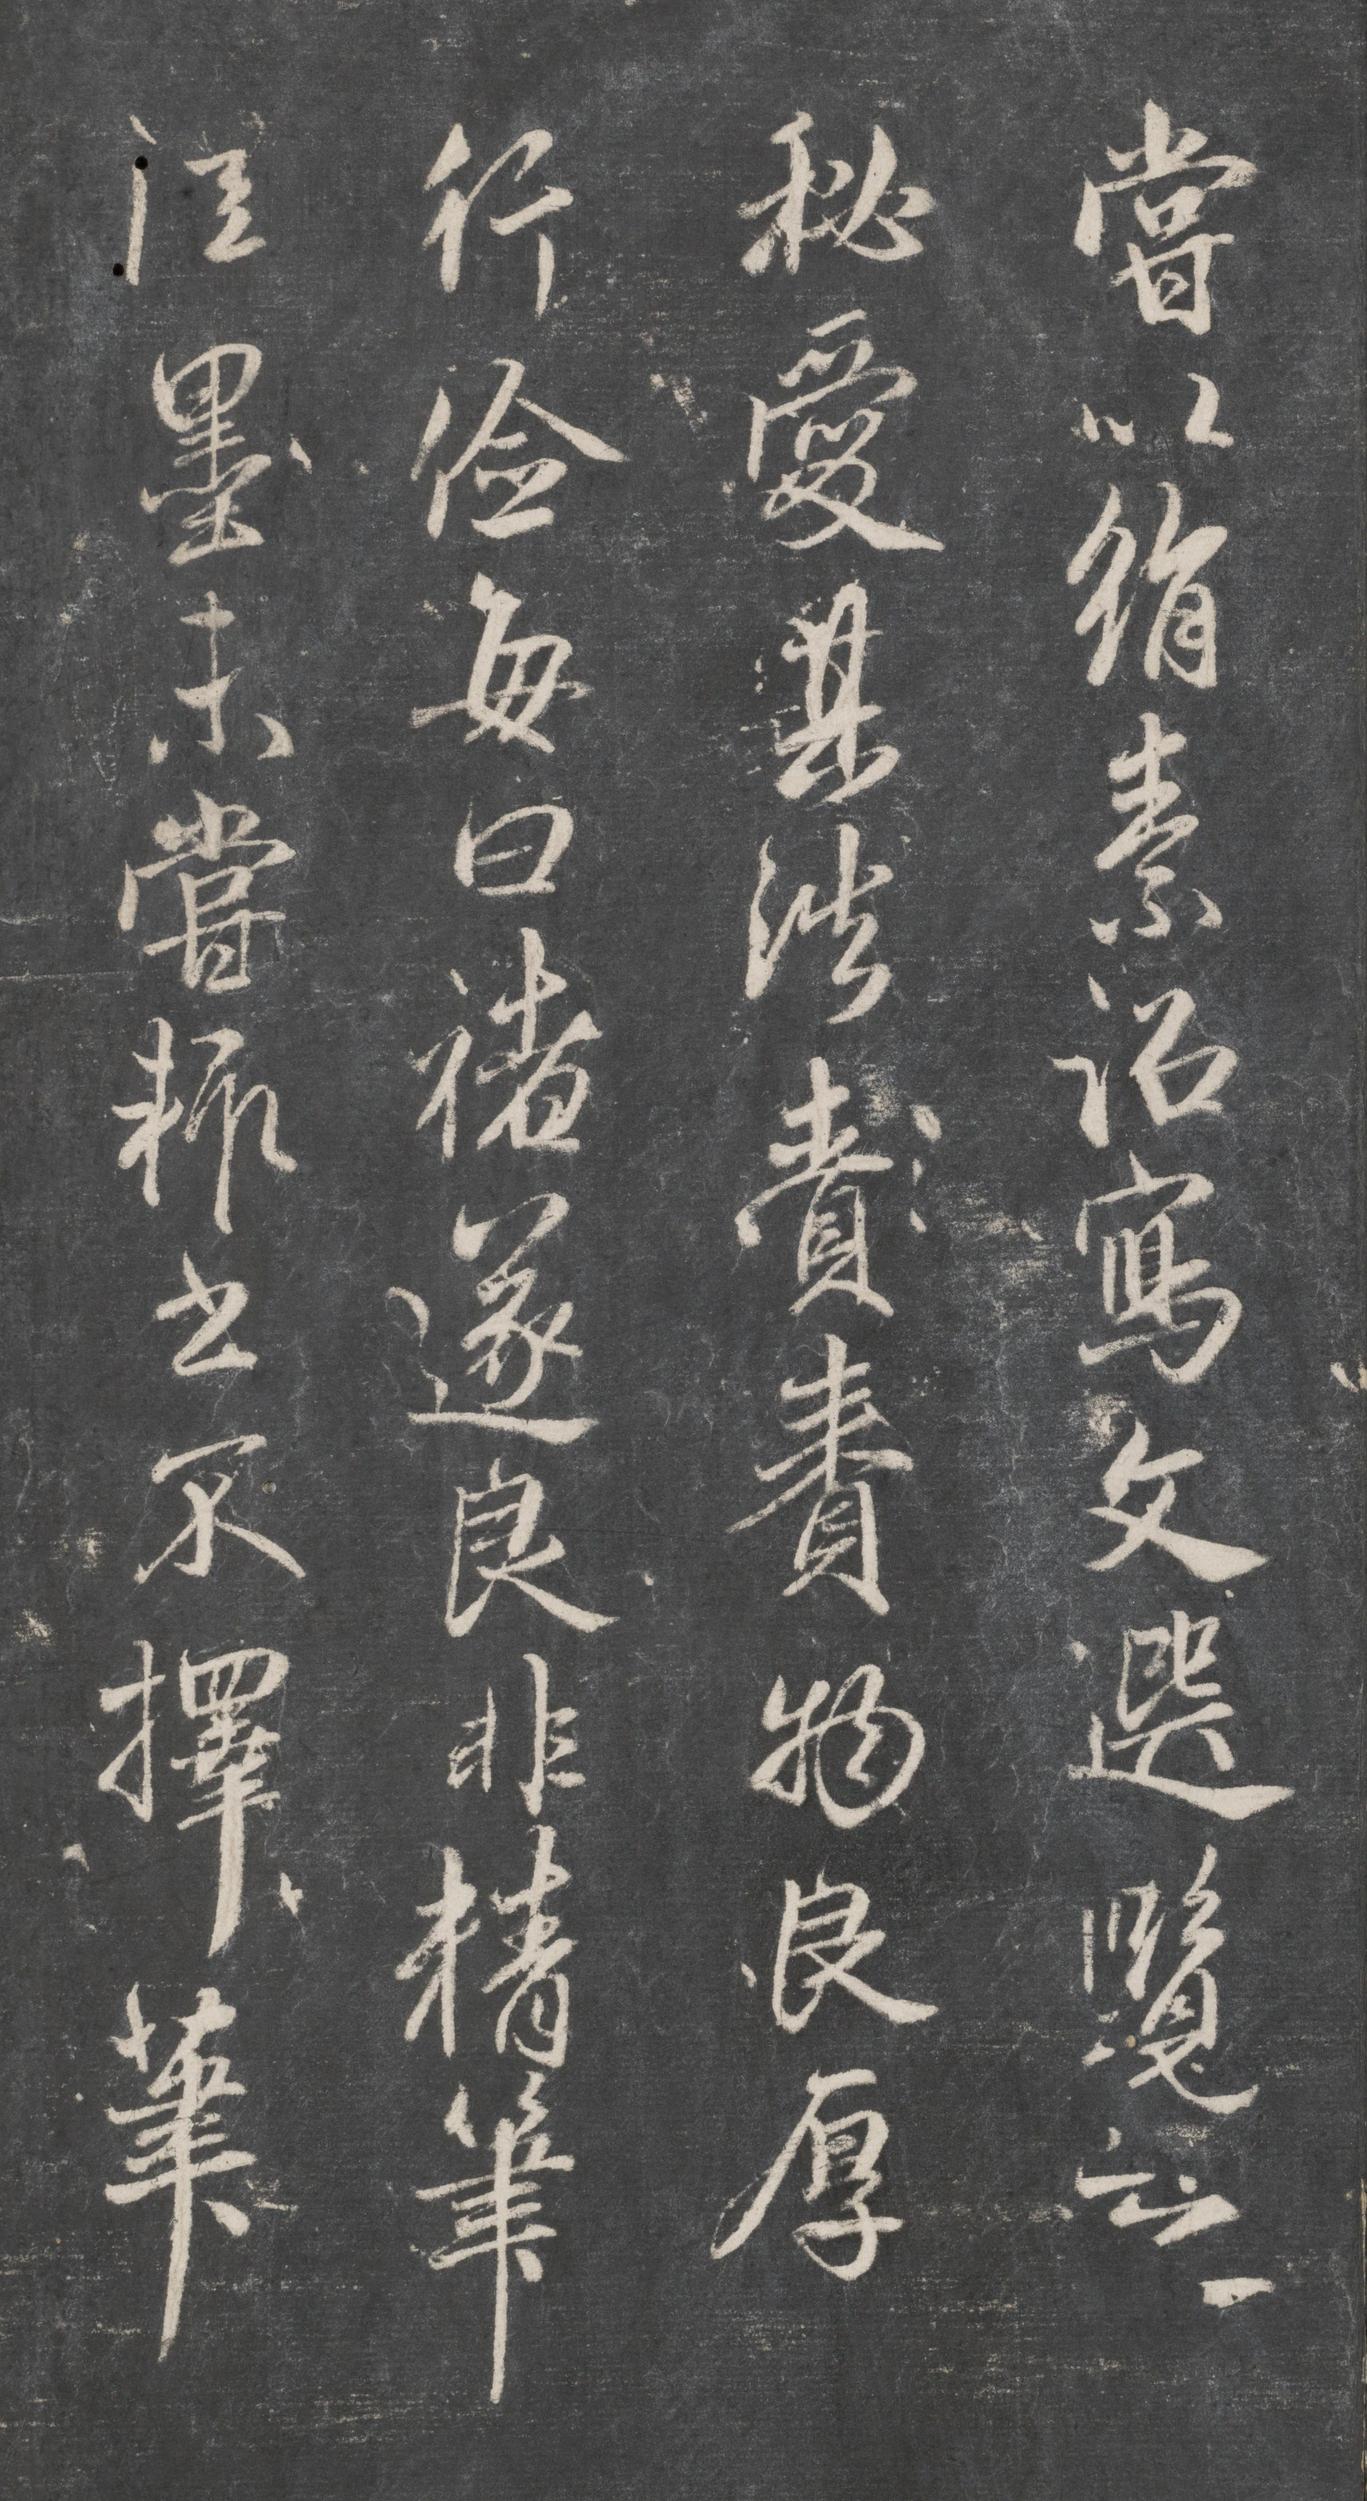 嘗以絹素詔寫文選覽之
秘愛其法賚賚物良厚
行儉每曰褚遂良非精筆
佳墨未嘗輒書不擇筆